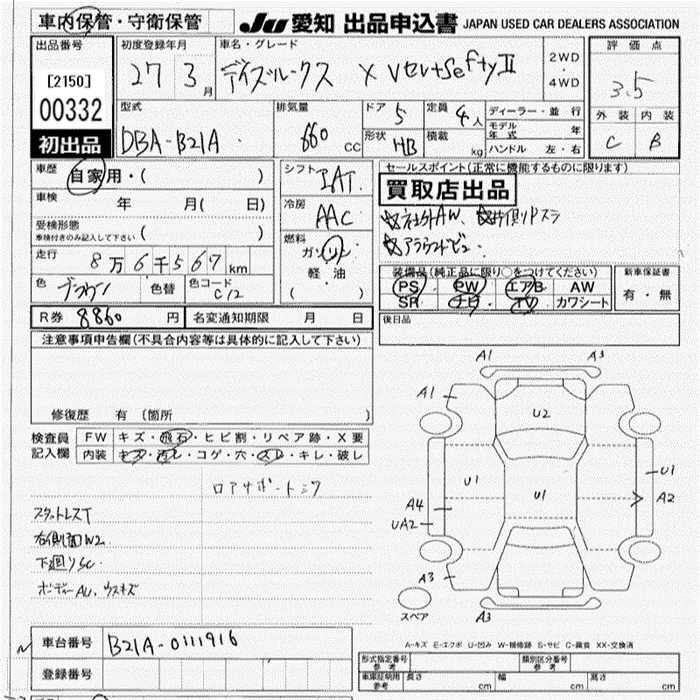 車内保管・守衛保管 JU 愛知 出品申込書 JAPAN USED CAR DEALERS ASSOCIATION
出品番号 初度登録年月 車名・グレード 2WD ・ 4WD 評価点
[2150] 27 3月 デイズルークス X Vセレ+SeftyⅡ 3.5
00332 型式 排気量 ドア 5 定員 4人 ディーラー・並行 外装 内装
初出品 DBA-B21A 660 CC 形状 HB 積載 kg モデル年式 年 C B
ハンドル 左・右
車歴 自家用・( ) シフト IAT セールスポイント(正常に機能するものに限ります)
車検 年 月( 日) 冷房 AAC 買取店出品
受検形態 車検付きのみ記入して下さい ( ) ☆社外AW ☆片側Pスラ
走行 8万6千567km 燃料 ガソリン 軽油 ( ) ☆アラウンドビュー
色 ブラウン 色替 色コード C12 装備品(純正品に限り○をつけてください) 新車保証書
PS PW エアB AW 有・無
SR ナビ TV カワシート
R券 8860 円 名変通知期限 月 日 後日品
注意事項申告欄(不具合内容等は具体的に記入して下さい)
修復歴 有 (箇所 )
検査員 記入欄 FW キズ・飛石・ヒビ割・リペア跡・X要
内装 キズ・汚レ・コゲ・穴・スレ・キレ・破レ
ロアサポートミク
スタットレスT
右側面W2
下廻りSC
ボディーAU、ウスキズ
A1 A3
A1
U2
U1 U1 U1
A4 A2
UA2
A3
スペア A3
A-キズ E-エクボ U-凹み W-補修跡 S-サビ C-腐食 XX-交換済
車台番号 B21A-0111916
登録番号
型式指定番号 参考 類別区分番号 参考
車庫証明用 参考 長さ cm 幅 cm 高さ cm